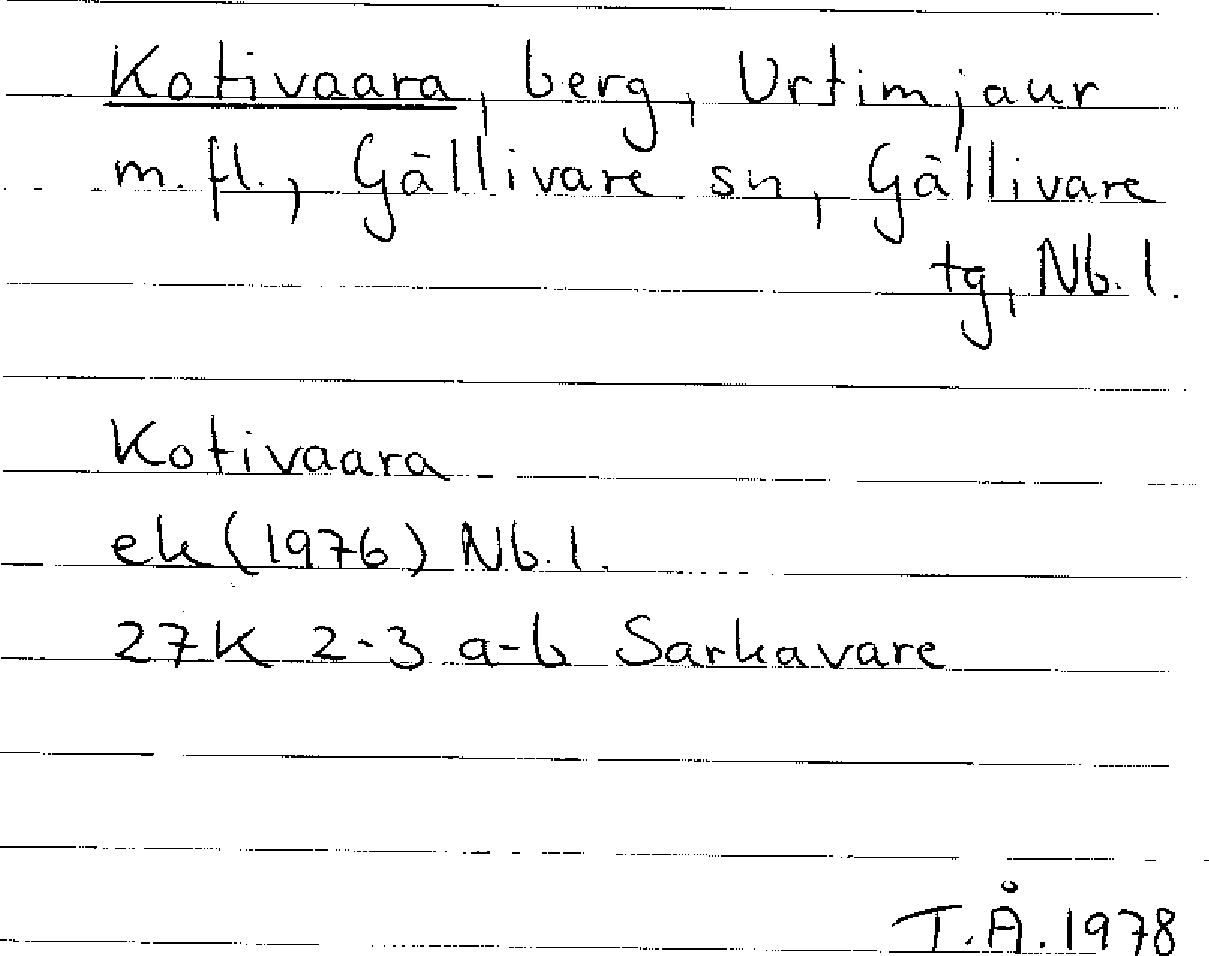 Kotivaara, berg, Urtimjaur
m.fl., Gällivare sn, Gällivare
tg, Nb.l.
Kotivaara
ek (1976) Nb.l.
27K 2-3 a-b Sarkavare
T.Å. 1978